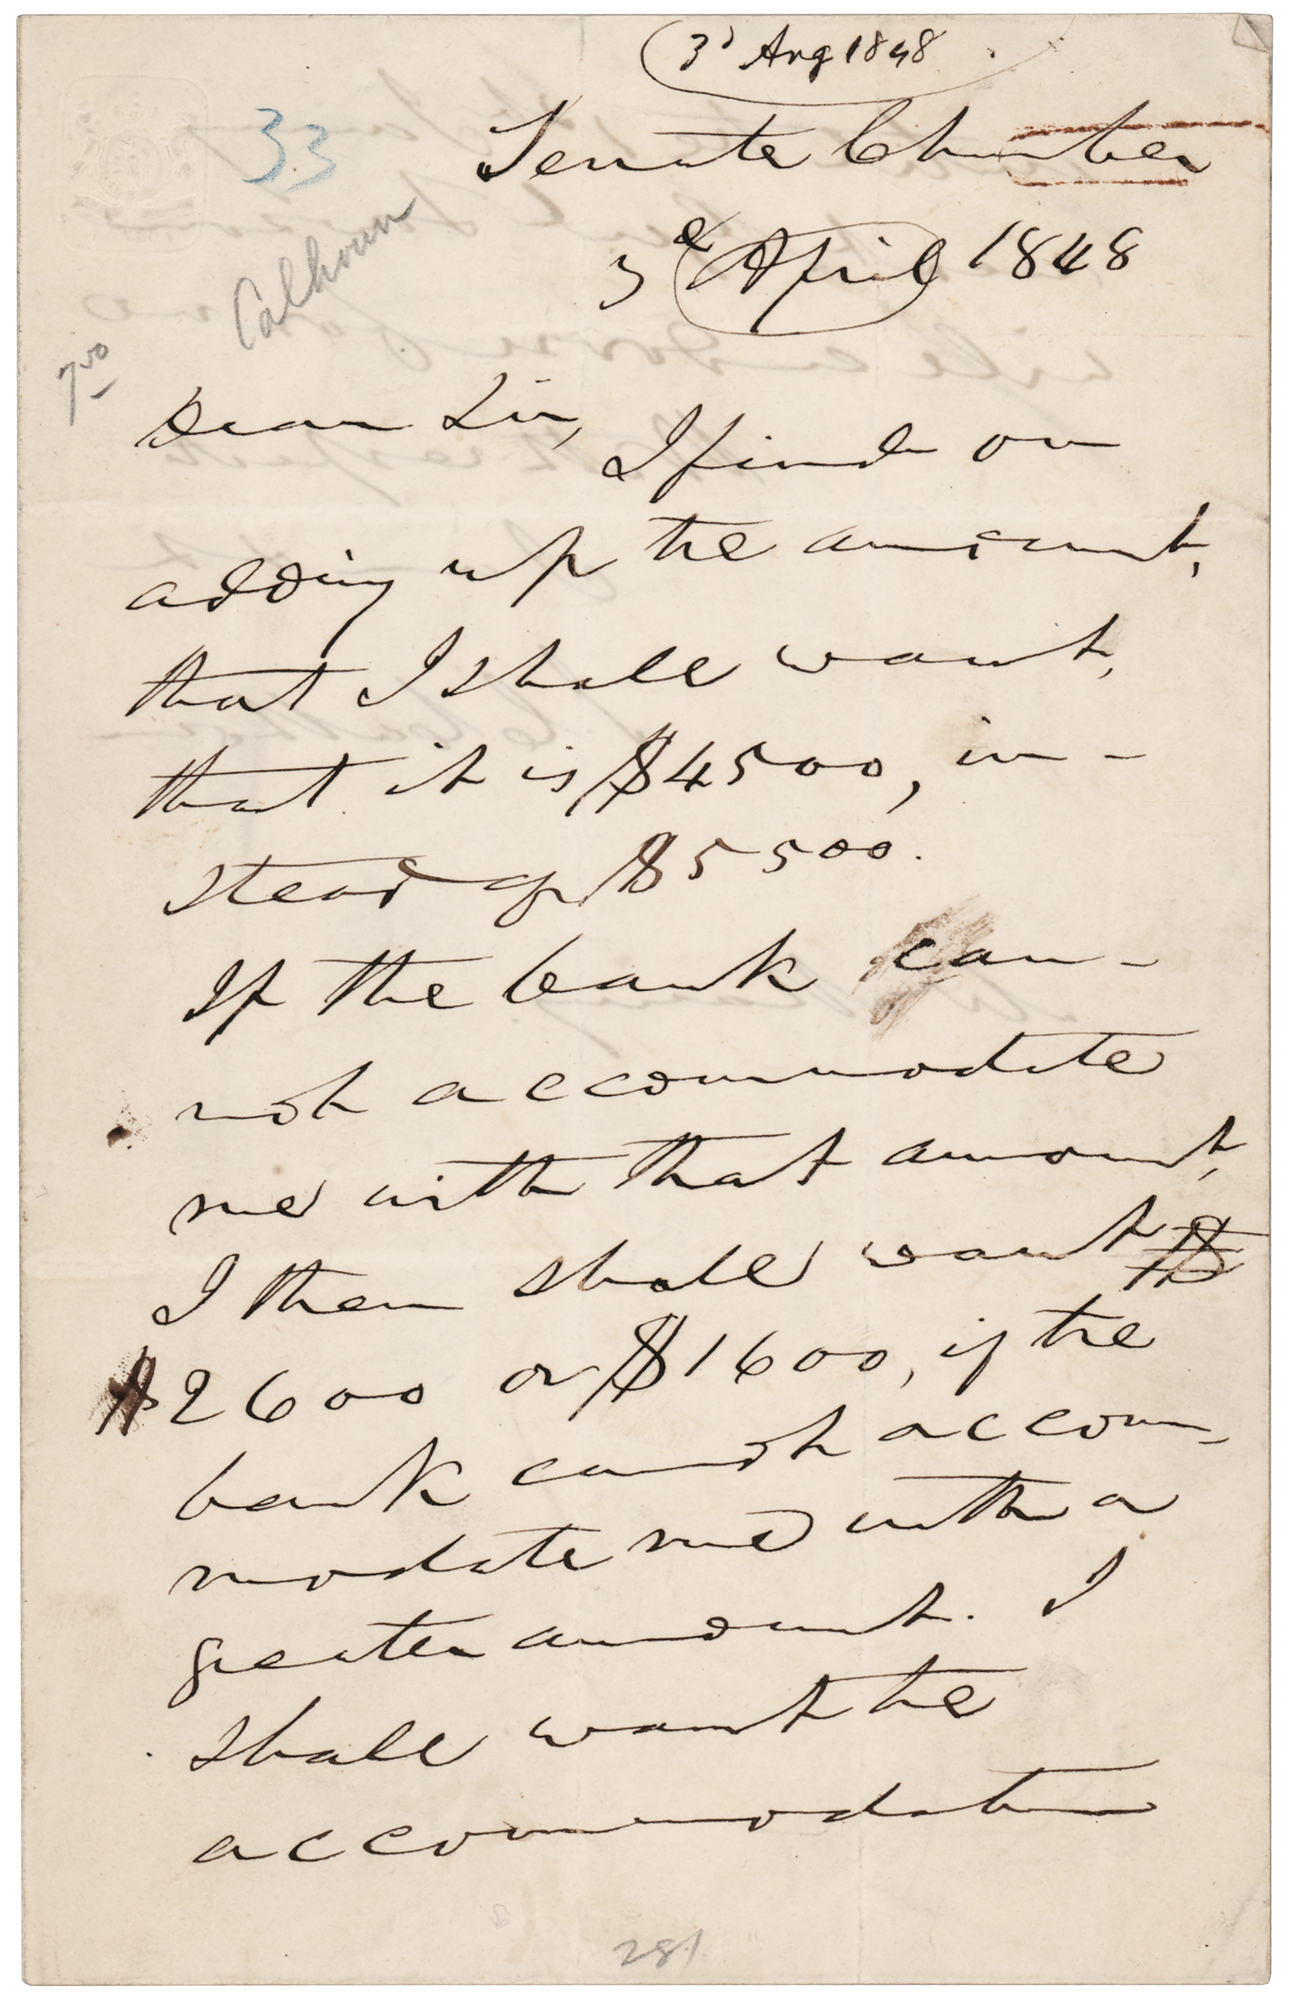 3d Aug 1848
33
Senate Chamber
3d April 1848
Calhoun
Dear Sir, I find on
adding up the amount,
that I shall want,
that it is $4500, in-
stead of $5500.
If the bank can-
not accommodate
me with that amount,
I then shall want $
$2600 or $1600, if the
bank cannot accom-
modate me with a
greater amount. I
shall want the
accommodation
281